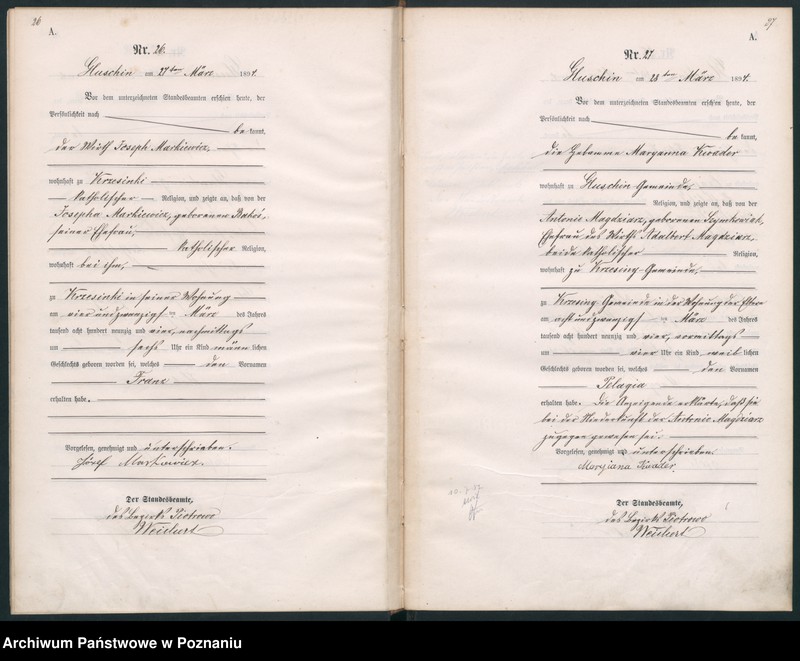 26
A.
Nr. 26.
Gluschin am 27ten März 1894.
Vor dem unterzeichneten Standesbeamten erschien heute, der
Persönlichkeit nach
bekannt,
der Wirth Joseph Markiewicz,
wohnhaft zu Krzesinki
katholischer Religion, und zeigte an, daß von der
Josepha Markiewicz, geborenen
seiner Ehefrau,
katholischer Religion,
wohnhaft bei ihm,
zu Krzesinki in seiner Wohnung
am vier und zwanzigsten März des Jahres
tausend acht hundert neunzig und vier, nachmittags
um sechs Uhr ein Kind männlichen
Geschlechts geboren worden sei, welches den Vornamen
Franz
erhalten habe.
Vorgelesen, genehmigt und unterschrieben.
Józef Markiewicz.
Der Standesbeamte,
des Bezirks Piotrowo
Weichert
27
A.
Nr. 27
Gluschin am 28ten März 1894.
Vor dem unterzeichneten Standesbeamten erschien heute, der
Persönlichkeit nach
bekannt,
die Hebamme Maryanna Kwader
wohnhaft zu Gluschin Gemeinde,
Religion, und zeigte an, daß von der
Antonie Magdziarz, geborenen Szymkowiak,
Ehefrau des Wirths Adalbert Magdziarz,
beide katholischer Religion,
wohnhaft zu Krzesing-Gemeinde,
zu Krzesing-Gemeinde in der Wohnung der Eltern
am acht und zwanzigsten März des Jahres
tausend acht hundert neunzig und vier, vormittags
um vier Uhr ein Kind weiblichen
Geschlechts geboren worden sei, welches den Vornamen
Pelagia
erhalten habe. Die Anzeigende erklärte, daß sie
bei der Niederkunft der Antonie Magdziarz
zugegen gewesen sei.
Vorgelesen, genehmigt und unterschrieben.
Maryjana Kwader.
Der Standesbeamte,
des Bezirks Piotrowo
Weichert
Archiwum Państwowe w Poznaniu